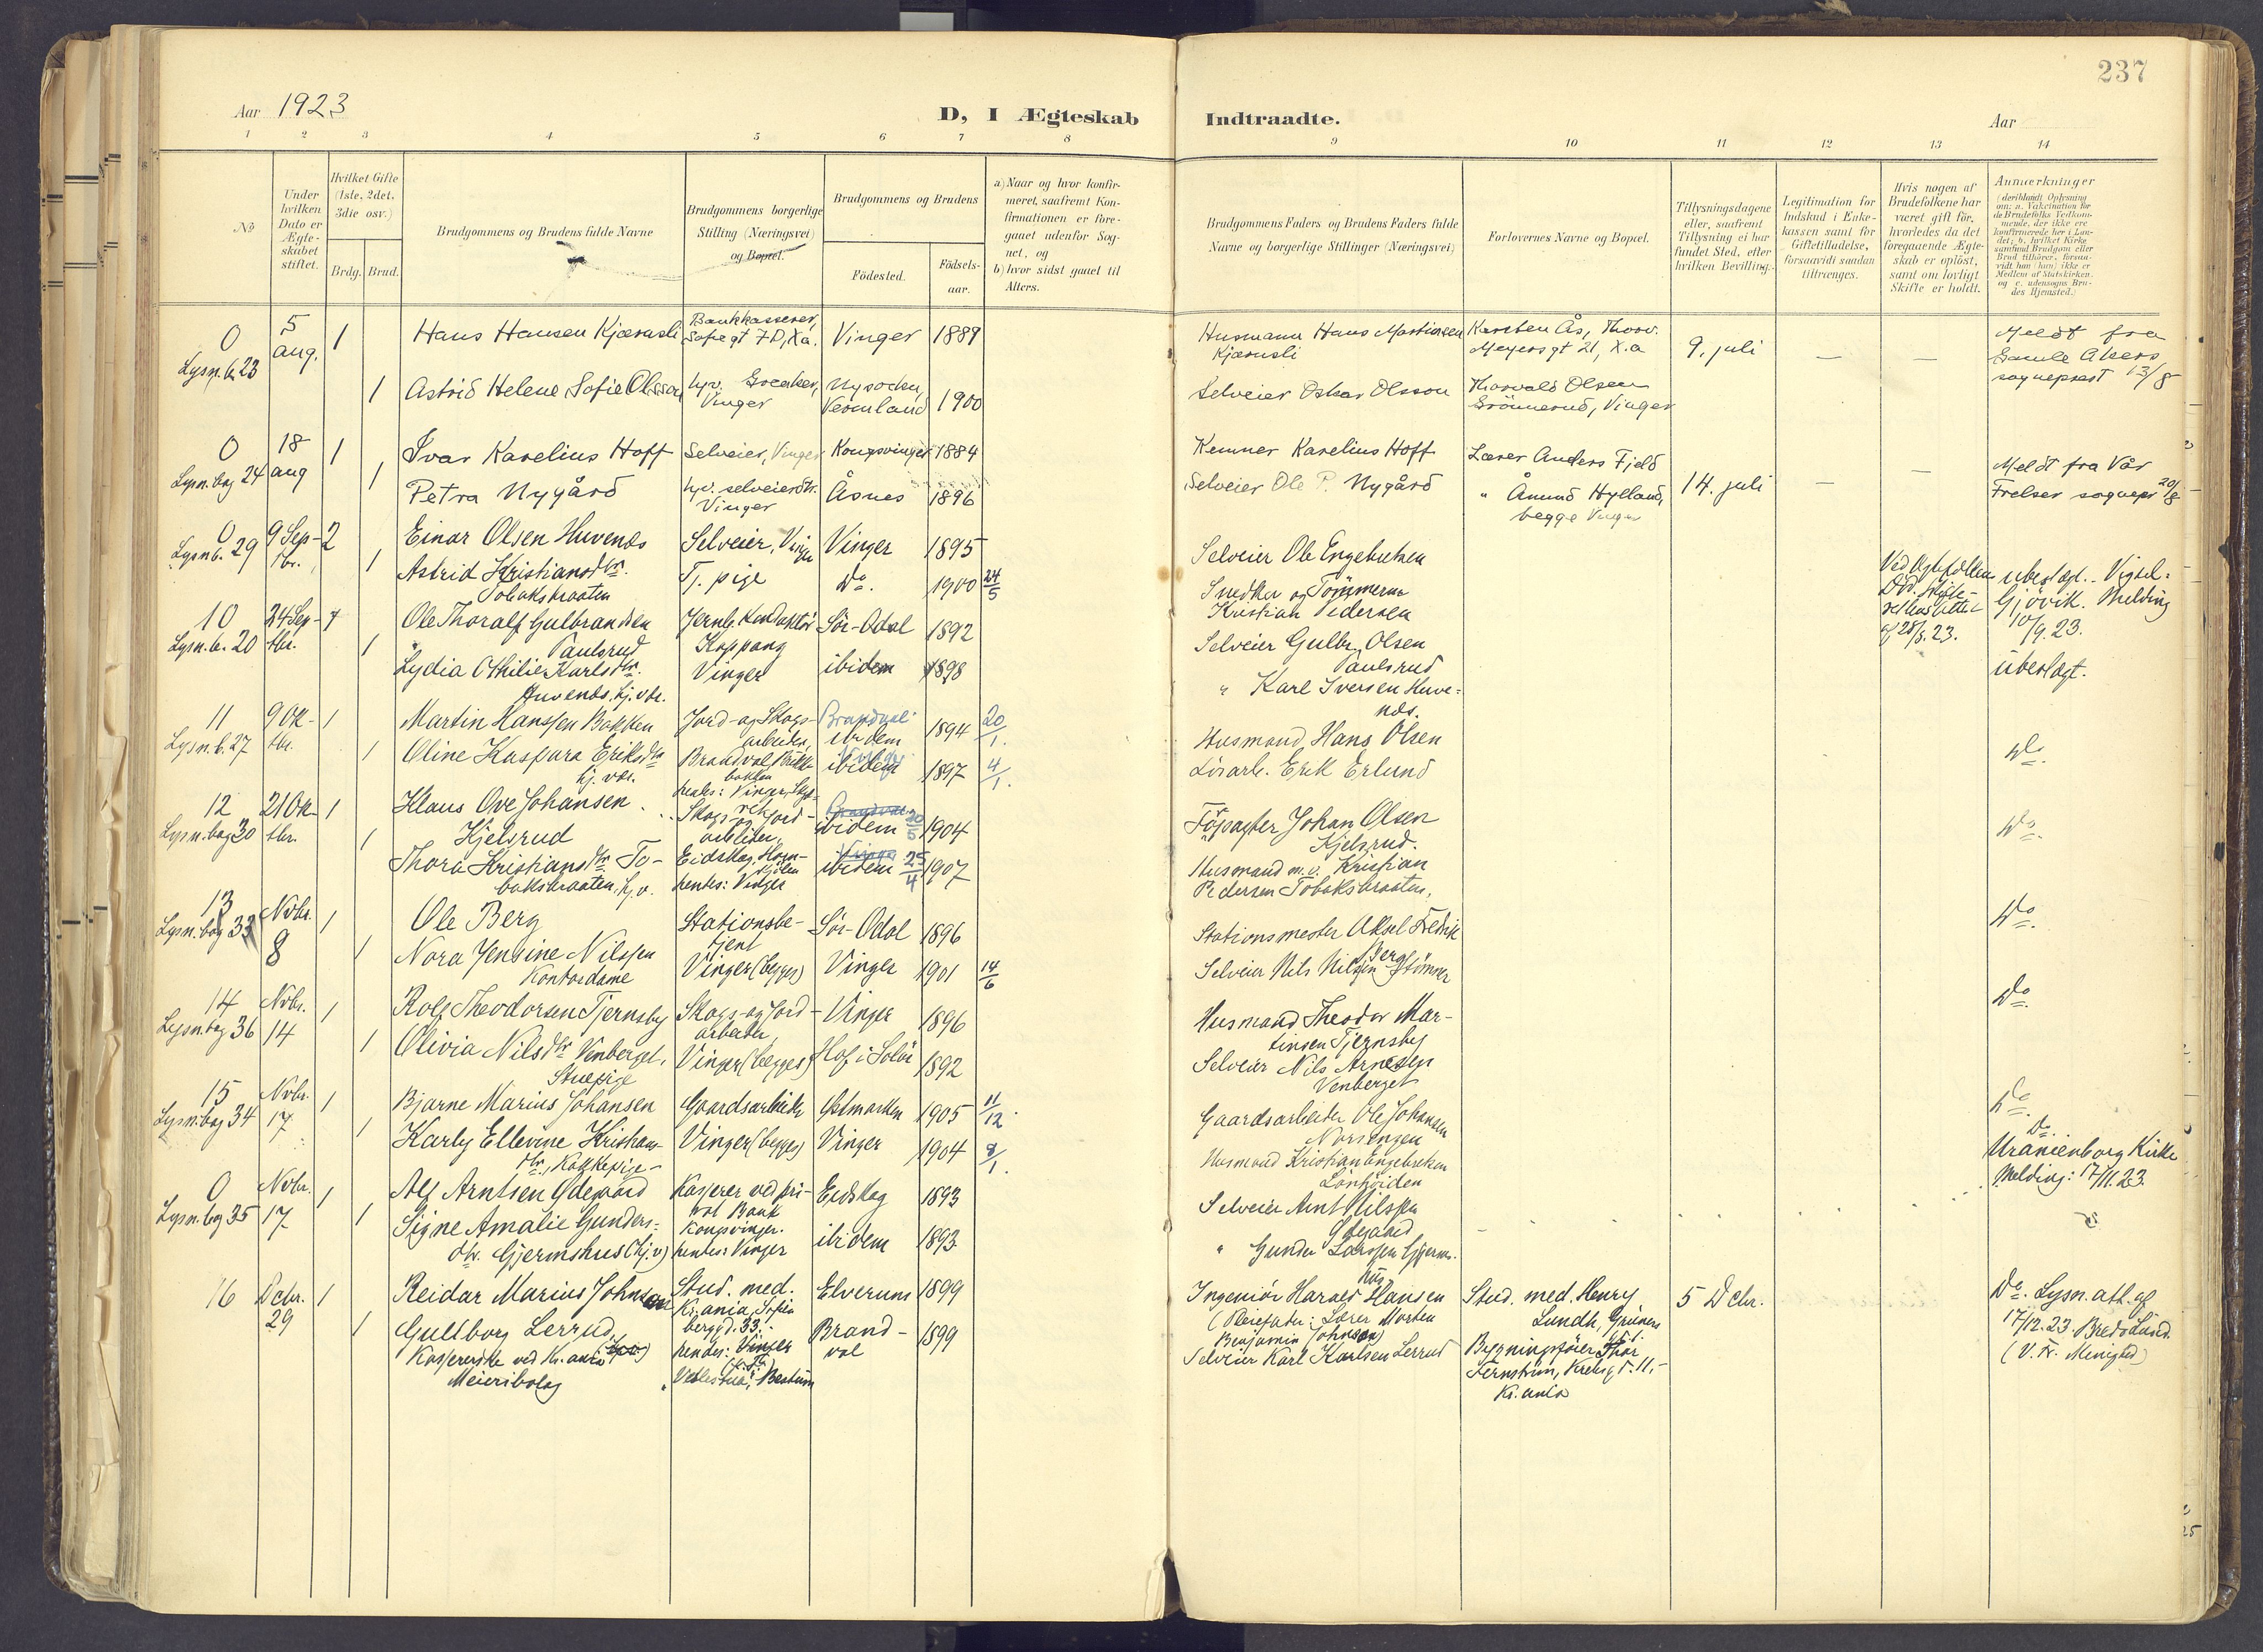 237
Aar 1923
D, I Ægteskab Indtraadte.
Aar
1 2 3 4 5 6 7 8 9 10 11 12 13 14
No
Under hvilken Dato er Ægteskabet stiftet.
Hvilket Gifte (1ste, 2det, 3die osv.)
Brdg. Brud.
Brudgommens og Brudens fulde Navne
Brudgommens borgerlige Stilling (Næringsvei) og Bopæl.
Brudgommens og Brudens
Fødested.
Fødselsaar.
a) Naar og hvor konfirmeret, saafremt Konfirmationen er foregaaet udenfor Sognet, og
b) hvor sidst gaaet til Alters.
Brudgommens Faders og Brudens Faders fulde Navne og borgerlige Stillinger (Næringsvei)
Forlovernes Navne og Bopæl.
Tillysningsdagene eller, saafremt Tillysning ei har fundet Sted, efter hvilken Bevilling.
Legitimation for Indskud i Enkekassen samt for Giftetilladelse, forsaavidt saadan tiltrænges.
Hvis nogen af Brudefolkene har været gift før, hvorledes da det foregaaende Ægteskab er opløst, samt om lovligt Skifte er holdt.
Anmærkninger
(deriblandt Oplysning om: a. Vakcination for de Brudefolks Vedkommende, der ikke ere konfirmerede her i Landet; b. hvilket Kirkesamfund Brudgom eller Brud tilhører, forsaavidt han (hun) ikke er Medlem af Statskirken. og c. udensogns Brudes Hjemsted.)
0 5 aug. 1 Hans Hansen Kjærnsli Bankkasserer, Sofiegt 7D, X.a. Vinger 1889 Husmann Hans Martinsen Kjærnsli Karsten Ås, Thorv. Meyersgt 21, X.a 9. juli — — Meldt fra Gamle Akers sogneprest 13/8
Lysn. b. 23
1 Astrid Helene Sofie Olsson hjv. Vinger Nysocken, Vermland 1900 Selveier Oskar Olsson Thorvald Olsen Grönnerud, Vinger
0 18 aug 1 Ivar Karelius Hoff Selveier, Vinger Kongsvinger 1884 Kemner Karelius Hoff Lærer Anders Fjeld
Lysn. bog 24
1 Petra Nygård hjv. selveierdtr. Vinger Åsnes 1896 Selveier Ole P. Nygård " Åmund Hylland, begge Vinger 14. juli — — Meldt fra Vår Frelser sognepr 20/8
0 9 Septbr. 2 Einar Olsen Huvends Selveier, Vinger Vinger 1895 Selveier Ole Engebretsen
Lysn b. 29
1 Astrid Kristiansdtr. Tobaksbraaten Tj. pige Do. 1900 24/5 Snedker og Tømmerm Kristian Pedersen
ubeslægt. Vigsel: Gjövik. Melding 10/9. 23.
10 24 Septbr. 1 Ole Thoralf Gulbrandsen Paulsrud Jernb. Konduktör Koppang Sör-Odal 1892 Selveier Gulbr. Olsen Paulsrud
Lysn. b. 20
1 Lydia Othilie Karlsdtr. Huvends, hj. vær. Vinger ibidem 1898 " Karl Iversen Huvends. ubeslægt.
11 9 Oktbr. 1 Martin Hanssen Bakken Jord- og Skogsarbeider, Brandval ibidem 1894 20/1. Husmand Hans Olsen
Lysn. b. 27
1 Oline Kaspara Eriksdtr hj. vær. hendes: Vinger ibidem 1897 4/1. Lösarb. Erik Erlund Do.
12 21 Oktbr. 1 Klaus Ove Johansen Kjelsrud Skogs- og Jordarbeider, ibidem 30/5 1904 Johan Olsen Kjelsrud. Do.
Lysn. bog 30
1 Thora Kristiansdtr. Tobaksbraaten, hj. v. Eidskog hendes: Vinger ibidem 25/4 1907 Husmand m. v. Kristian Pedersen Tobaksbraaten.
13 Novbr. 8 1 Ole Berg Stationsbetjent Sör-Odal 1896 Stationsmester Aksel Fredrik Berg Do.
Lysn. bog 33
1 Nora Jensine Nilssen Kontordame Vinger (begges) Vinger 1901 14/6 Selveier Nils Nilssen Stömner
14 Novbr. 14 1 Rolf Theodorsen Tjernsby Skogs- og Jordarbeider Vinger 1896 Husmand Theodor Martinsen Tjernsby Do.
Lysn. bog 36
1 Olivia Nilsdtr Venberget, Stuepige Vinger (begges) Hof i Solör 1892 Selveier Nils Arnesen Venberget
15 Novbr. 17 1 Bjarne Marius Johansen Gaardsarbeider Østmarken 1905 11/12. Gaardsarbeider Ole Johansen Norsengen Do.
Lysn. bog 34
1 Karly Ellevine Kristiansdtr., Kokkepige Vinger (begges) Vinger 1904 8/1. Husmand Kristian Engebretsen Lönhöiden
0 Novbr. 17 1 Alf Arntsen Ødegaard Kasserer ved privat Bank Kongsvinger. Eidskog 1893 Selveier Arnt Nilssen Ødegaard Do. Uranienborg Kirke Melding: 17/11. 23.
Lysn. bog 35
1 Signe Amalie Gundersdtr. Gjermshus (hj. v) hendes: Vinger ibidem 1893 " Gunder Larssen Gjermshus
16 Dcbr. 29 1 Reidar Marius Johnsen Stud. med. Kr.ania, Sofienbergg d. 33. Elverum 1899 Ingeniör Harald Hansen (Pleiefader: Lærer Morten Benjamin Johnsen) Stud. med. Henry Lundh, 5 Dcbr. Do. Lysn. att. af 17/12. 23 Bredo Lund. (V. Fr. Menighed)
1 Gullborg Lerrud, Kassererske ved Kr.ania Meieribolag hendes: Vinger Bestum Brandval 1899 Selveier Karl Karlsen Lerrud Bygningsförer Thor Fernström, Kr.ania